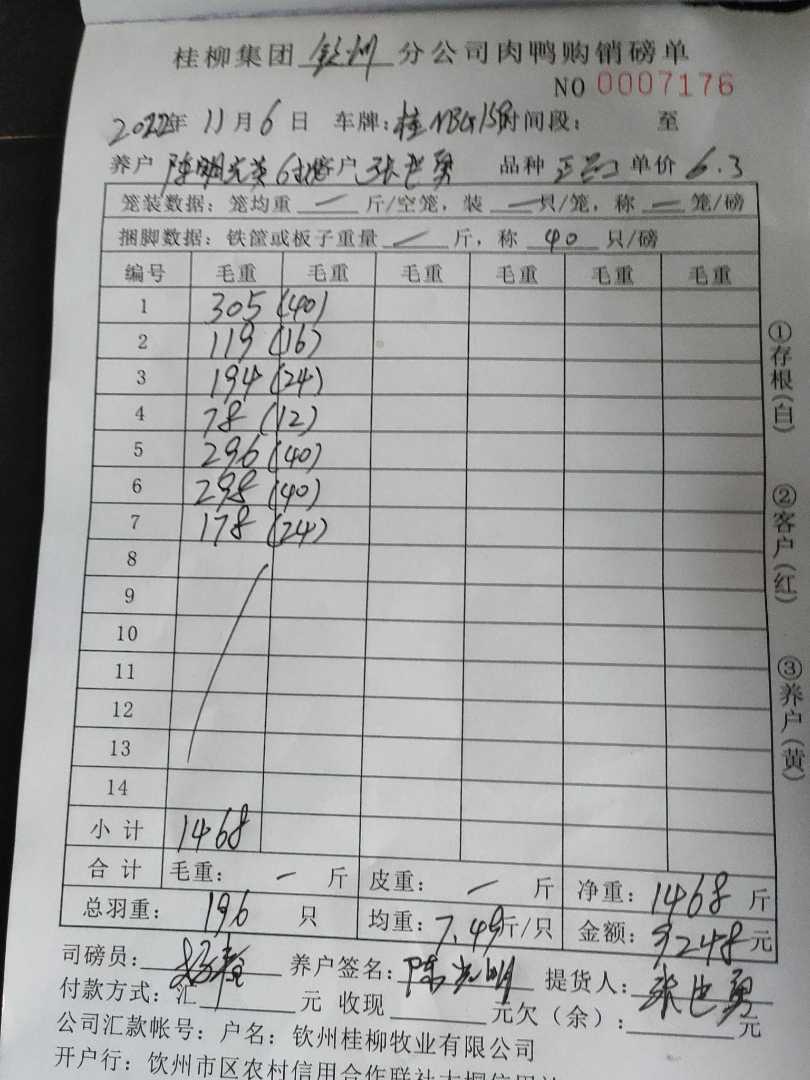 桂柳集团 钦州 分公司肉鸭购销磅单
NO 0007176
2022年 11月 6日 车牌: 桂 时间段: 至
养户 陈明光 客户 张世勇 品种 单价 6.3
笼装数据: 笼均重 — 斤/空笼, 装 — 只/笼, 称 — 笼/磅
捆脚数据: 铁筐或板子重量 — 斤, 称 40 只/磅
编号 毛重 毛重 毛重 毛重 毛重 毛重
1 305 (40)
2 119 (16)
3 194 (24)
4 78 (12)
5 296 (40)
6 298 (40)
7 178 (24)
8
9
10
11
12
13
14
小计 1468
合计 毛重: — 斤 皮重: — 斤 净重: 1468 斤
总羽重: 196 只 均重: 7.49 斤/只 金额: 9248 元
司磅员: 养户签名: 陈光明 提货人: 张世勇
付款方式: 汇 元 收现 元欠(余): 元
公司汇款帐号: 户名: 钦州桂柳牧业有限公司
开户行: 钦州市区农村信用合作联社
①存根(白)
②客户(红)
③养户(黄)